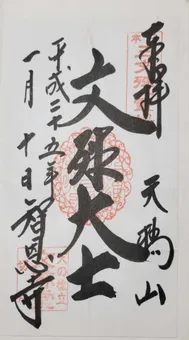 奉拝 天橋山
文殊大士
平成二十五年
一月十日 智恩寺